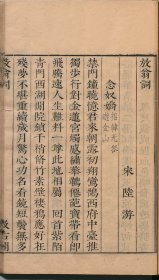 放翁詞
宋陸游
念奴嬌 招韓無咎遊金山
禁門鐘曉憶君來朝路初翔鸞鵠西府中臺推
獨步行對金蓮宮燭蹙繡華韉仙葩寶帶看即
飛騰速人生難料一尊此地相屬 回首紫陌
青門西湖閒院鎖千梢修竹素壁棲鴉應好在
殘夢不堪重續歲月驚心功名看鏡短鬢無多
放翁詞